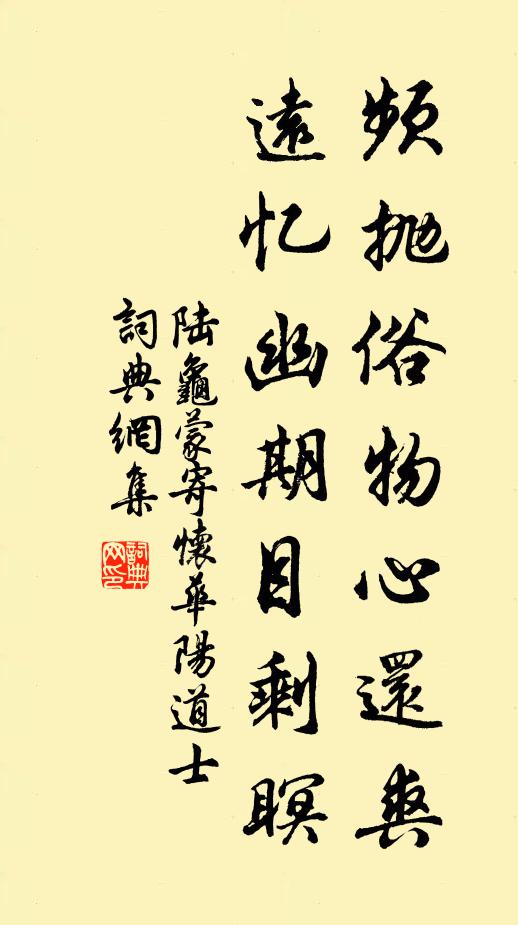 频抛俗物心還爽
遠忆幽期目剩瞑
陆龜蒙寄懷華陽道士
詞典網集
詞典网印